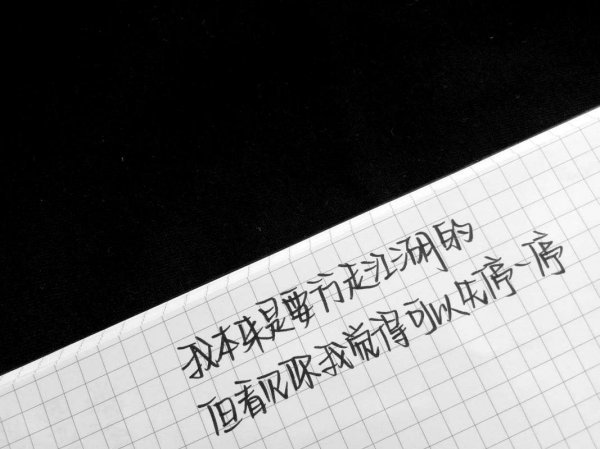 我本来是要行走江湖的
但看见你我觉得可以先停一停